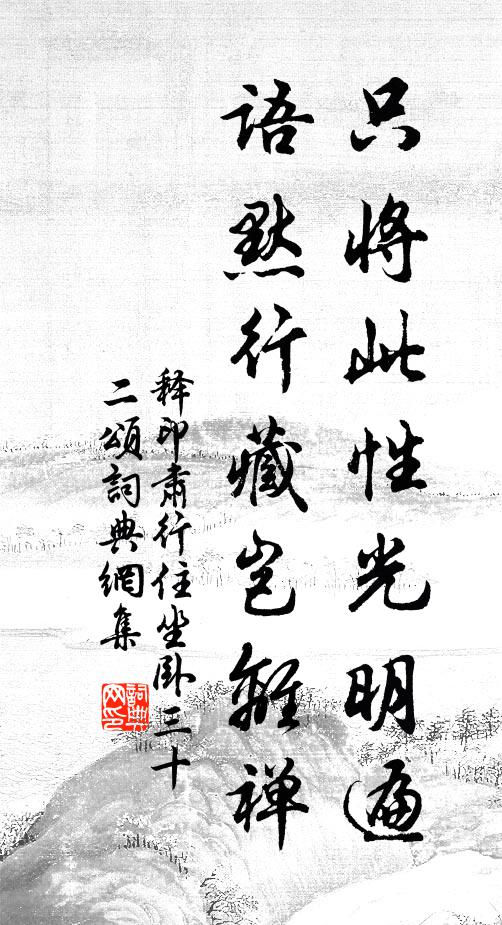 只将此性光明遍
語默行藏豈離禅
释印肃行住坐卧三十
二頌詞典網集
詞典网印